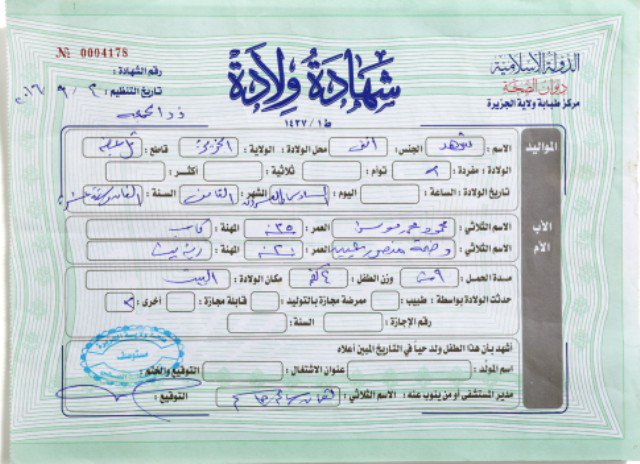 № 0004178
الدولة الإسلامية
ديوان الصحة
مركز طبابة ولاية الجزيرة
شهادة ولادة
ط١/١٤٣٧
رقم الشهادة :
تاريخ التنظيم : ٢ / ٩ / ٢٠١٦
المواليد
الاسم : شهد الجنس : انثى محل الولادة : الولاية : الجزيرة قاطع : تل عبطة
الولادة : مفردة : توأم : ثلاثية : أكثر :
تاريخ الولادة : الساعة : اليوم : الشهر : الثامن السنة :
الأب الاسم الثلاثي : محمود عمر موسى العمر : ٣٥ سنة المهنة : كاسب
الأم الاسم الثلاثي : العمر : ٢٠ سنة المهنة : ربة بيت
مدة الحمل : ٩ وزن الطفل : ٤ كغم مكان الولادة : البيت
حدثت الولادة بواسطة : طبيب : ممرضة مجازة بالتوليد : قابلة مجازة : أخرى :
رقم الإجازة : السنة :
أشهد بأن هذا الطفل ولد حياً في التاريخ المبين أعلاه
اسم المولد : عنوان الاشتغال : التوقيع والختم :
مدير المستشفى أو من ينوب عنه : الاسم الثلاثي : التوقيع :